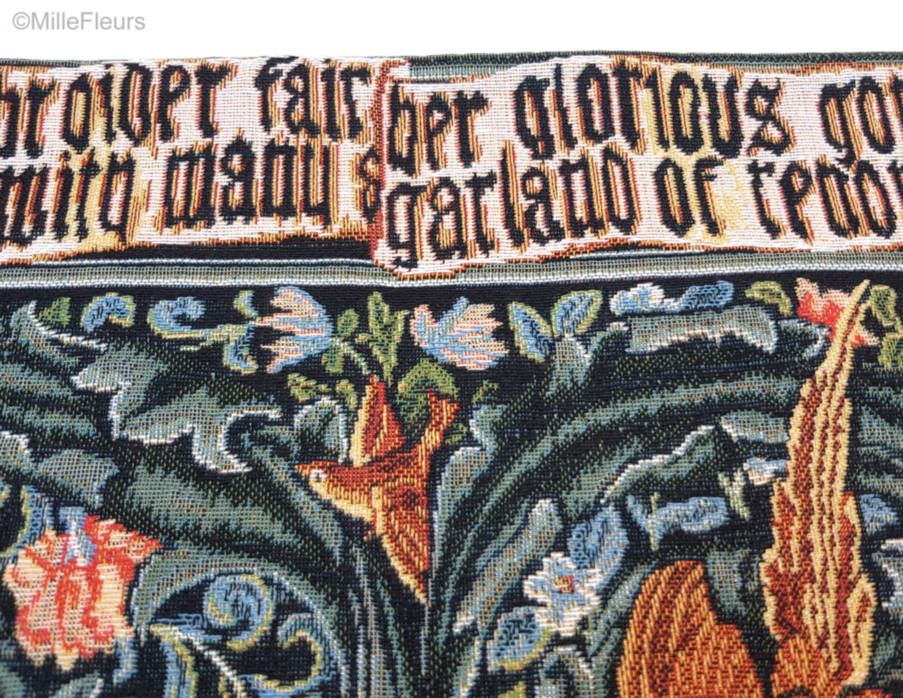 ©MilleFleurs
broider fair her glorious
with many garland of